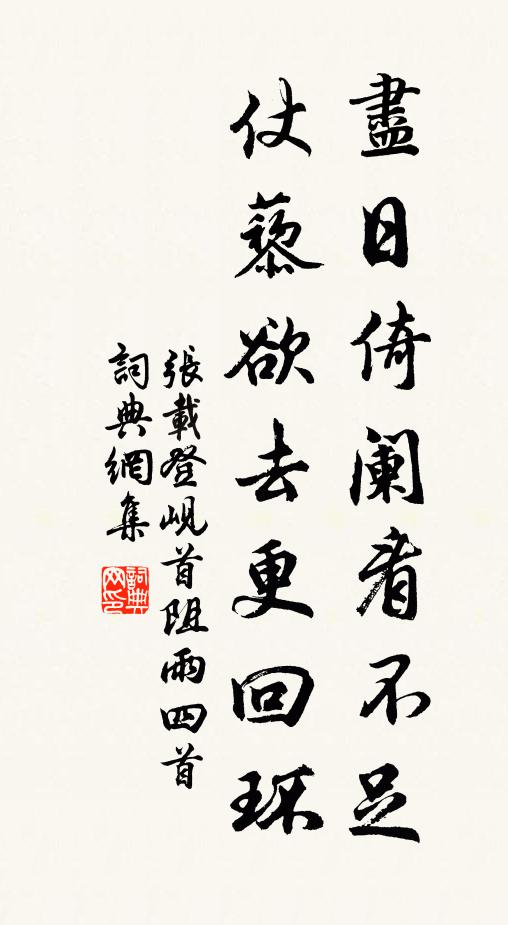 盡日倚闌看不足
仗藜欲去更回环
張載登峴首阻雨四首
詞典網集
詞典网印